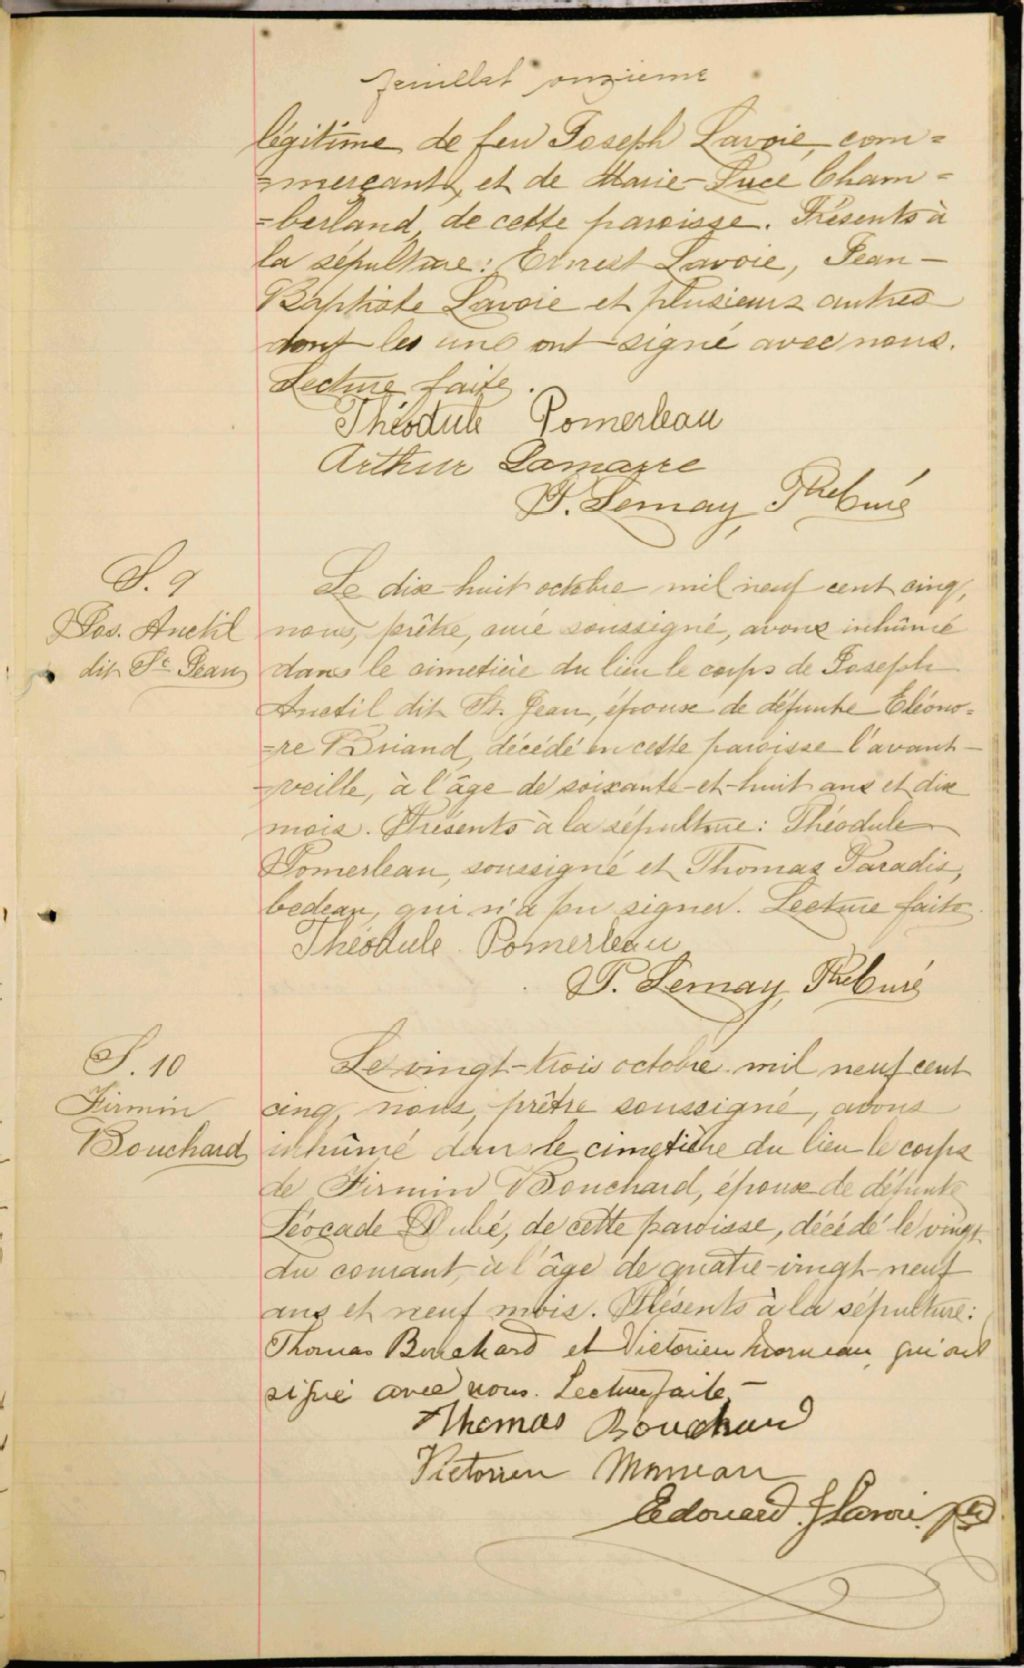 feuillet onzieme
légitime de feu Joseph Lavoie, com=
=merçant, et de Marie-Luce Cham=
=berland, de cette paroisse. Présents à
la sépulture: Ernest Lavoie, Jean-
Baptiste Lavoie et plusieurs autres
dont les uns ont signé avec nous.
Lecture faite.
Théodule Pomerleau
Arthur Lamarre
P. Lemay, Ptre Curé
S. 9
Jos. Anctil
dit St Jean
Le dix-huit octobre mil neuf cent cinq,
nous, prêtre, curé soussigné, avons inhûmé
dans le cimetière du lieu le corps de Joseph
Anctil dit St. Jean, époux de défunte Eléono=
=re Briand, décédé en cette paroisse l'avant-
-veille, à l'âge de soixante-et-huit ans et dix
mois. Présents à la sépulture: Théodule
Pomerleau, soussigné et Thomas Paradis,
bedeau, qui n'a pu signer. Lecture faite.
Théodule Pomerleau
P. Lemay, Ptre Curé
S. 10
Firmin
Bouchard
Le vingt-trois octobre mil neuf cent
cinq, nous, prêtre soussigné, avons
inhûmé dans le cimetière du lieu le corps
de Firmin Bouchard, époux de défunte
Léocade Dubé, de cette paroisse, décédé le vingt
du courant, à l'âge de quatre-vingt-neuf
ans et neuf mois. Présents à la sépulture:
Thomas Bouchard et Victorien Morneau, qui ont
signé avec nous. Lecture faite.-
Thomas Bouchard
Victorien Morneau
Edouard J Lavoie, ptre